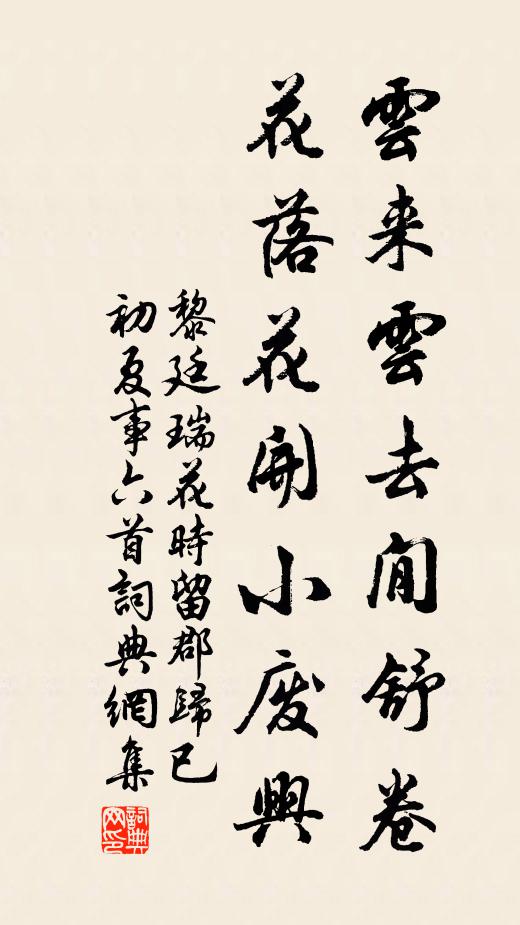 雲来雲去閒舒卷
花落花開小废興
黎廷瑞花時留郡歸已
初夏事六首詞典網集
詞典网印